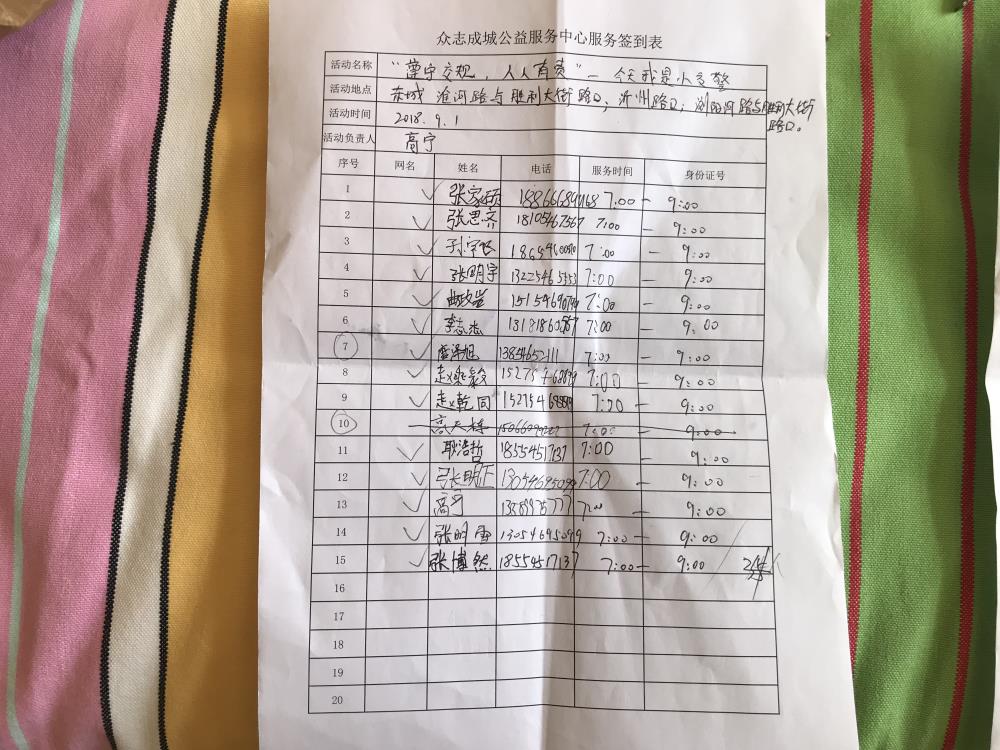 众志成城公益服务中心服务签到表
活动名称 “遵守交规，人人有责”— 今天我是小交警
活动地点 东城 淮河路与胜利大街路口；沂州路口；浏阳河路与胜利大街路口。
活动时间 2018.9.1
活动负责人 高宁
序号 网名 姓名 电话 服务时间 身份证号
1 ✓ 张家硕 7:00 — 9:00
2 ✓ 张思齐 18105467567 7:00 — 9:00
3 ✓ 7:00 — 9:00
4 ✓ 张明宇 13225465353 7:00 — 9:00
5 ✓ 7:00 — 9:00
6 ✓ 李志忠 7:00 — 9:00
7 ✓ 13854652111 7:00 — 9:00
8 ✓ 7:00 — 9:00
9 ✓ 赵乾同 7:00 — 9:00
10 7:00 — 9:00
11 ✓ 耿浩哲 18554517137 7:00 — 9:00
12 ✓ 张明正 13054695099 7:00 — 9:00
13 ✓ 高宁 7:00 — 9:00
14 ✓ 张明雪 13054695099 7:00 — 9:00
15 ✓ 张博然 18554517137 7:00 — 9:00
16
17
18
19
20